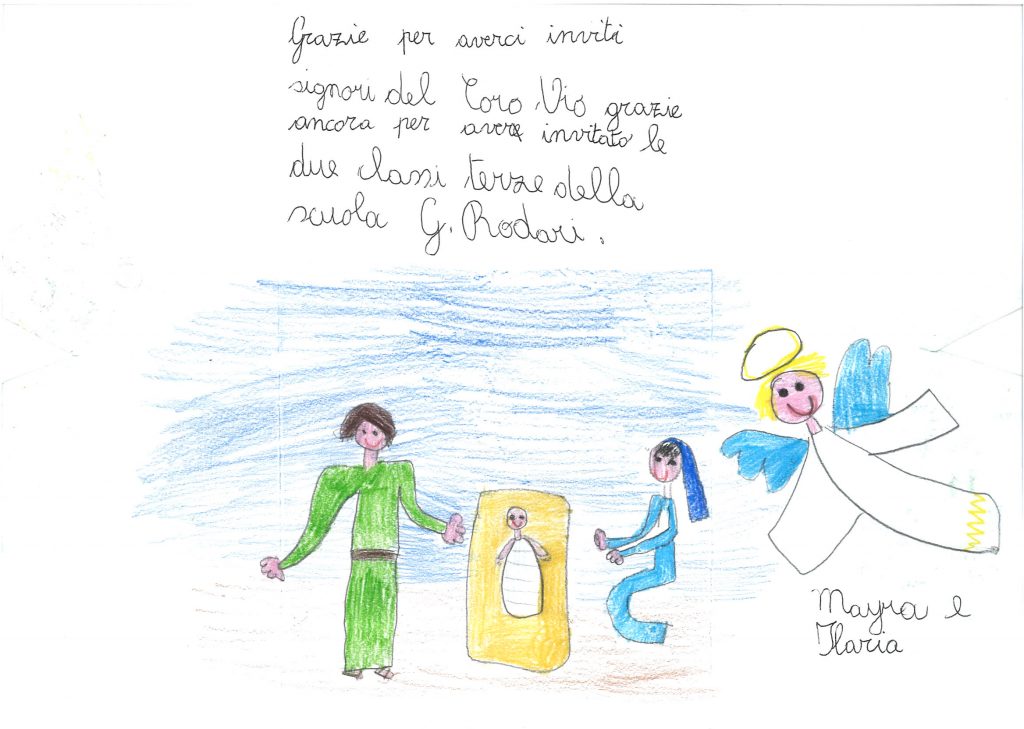 Grazie per averci inviti
signori del Coro Vio grazie
ancora per avere invitato le
due classi terze della
scuola G. Rodari.
Mayra e
Ilaria